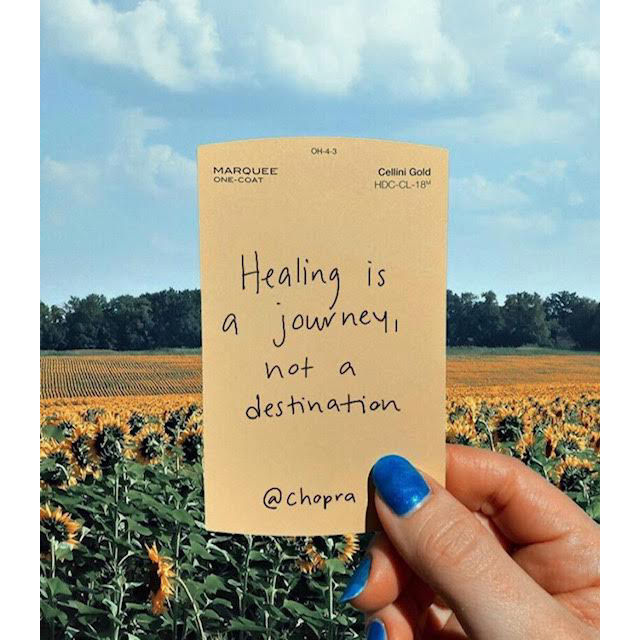 OH-4-3
MARQUEE
ONE-COAT
Cellini Gold
HDC-CL-18ᴹ
Healing is
a journey,
not a
destination
@chopra